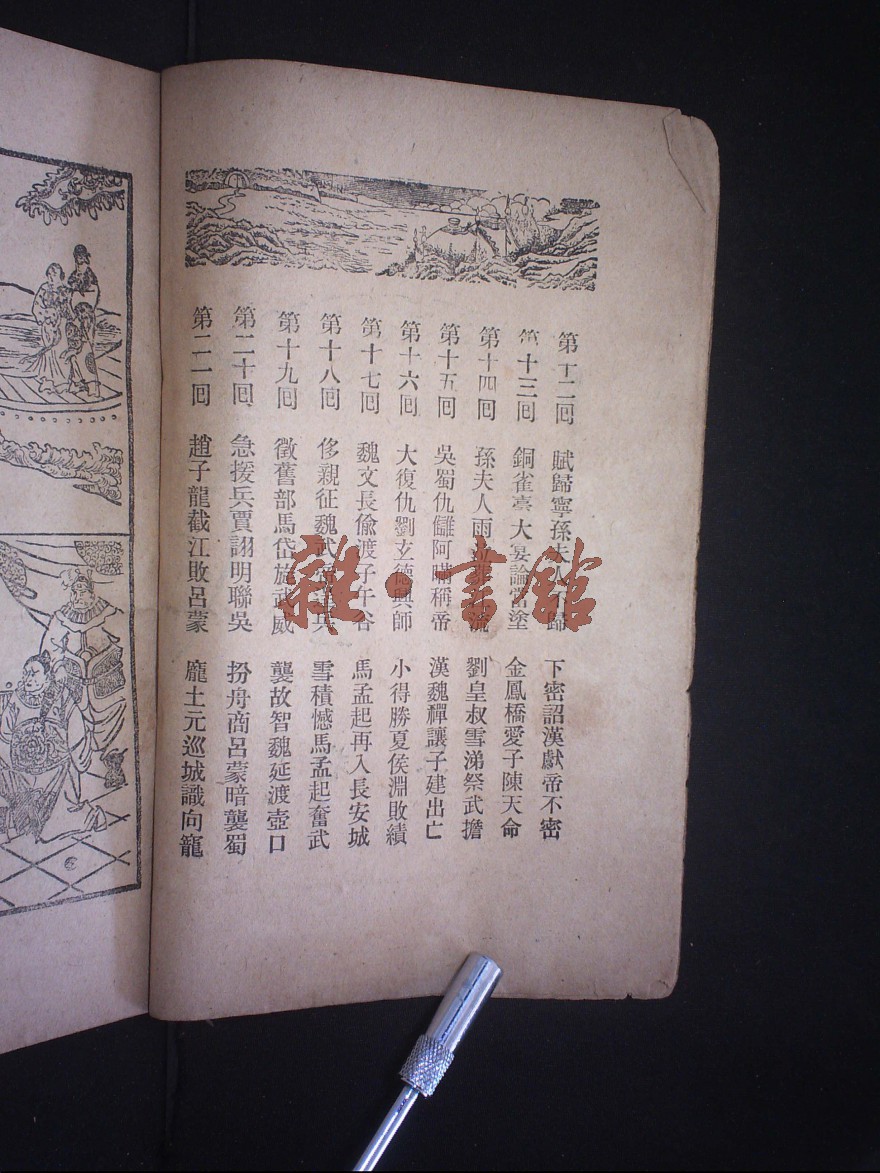 第十二回 賦歸寧孫夫人不歸 下密詔漢獻帝不密
第十三回 銅雀臺大宴論當塗 金鳳橋愛子陳天命
第十四回 孫夫人雨 流 劉皇叔雪涕祭武擔
第十五回 吳蜀仇讎阿瞞稱帝 漢魏禪讓子建出亡
第十六回 大復仇劉玄德興師 小得勝夏侯淵敗績
第十七回 魏文長偷渡子午谷 馬孟起再入長安城
第十八回 侈親征魏武帝 兵 雪積憾馬孟起奮武
第十九回 徵舊部馬岱施武威 襲故智魏延渡壺口
第二十回 急援兵賈詡明聯吳 扮舟商呂蒙暗襲蜀
第二一回 趙子龍截江敗呂蒙 龐士元巡城識向寵
雜·書館